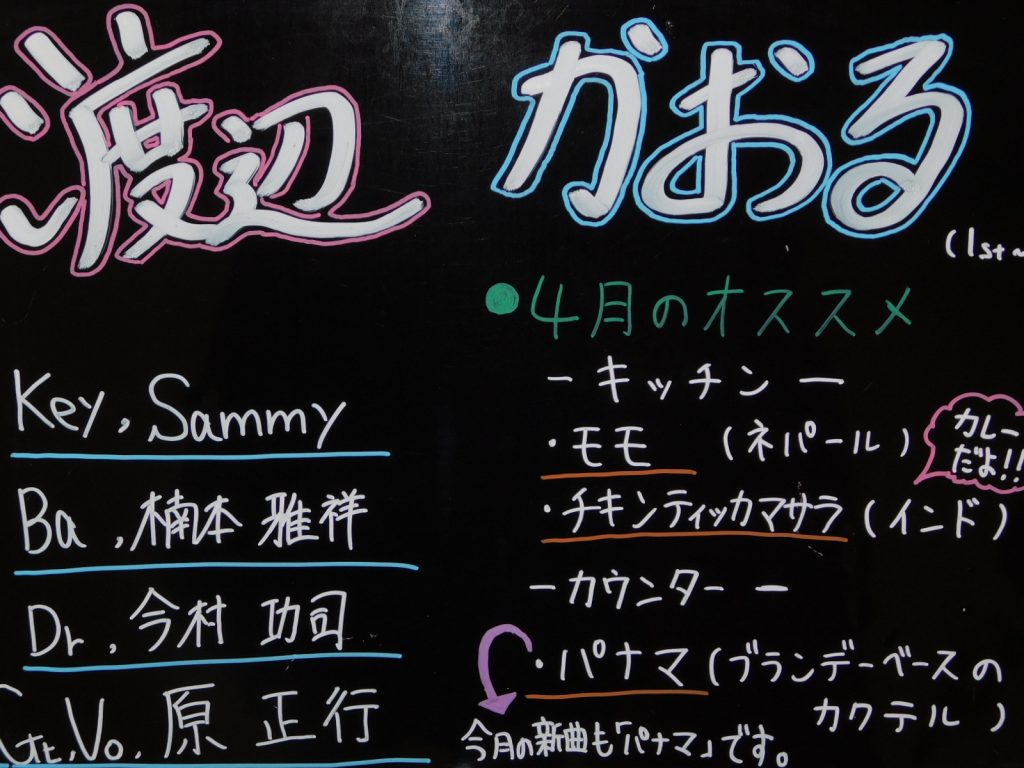 渡辺 かおる
(1st~
Key, Sammy
Ba, 楠本 雅祥
Dr, 今村 功司
Gt, Vo, 原 正行
●4月のオススメ
ーキッチンー
・モモ (ネパール)
・チキンティッカマサラ (インド)
カレー
だよ!!
ーカウンターー
・パナマ (ブランデーベースの
カクテル)
今月の新曲も「パナマ」です。